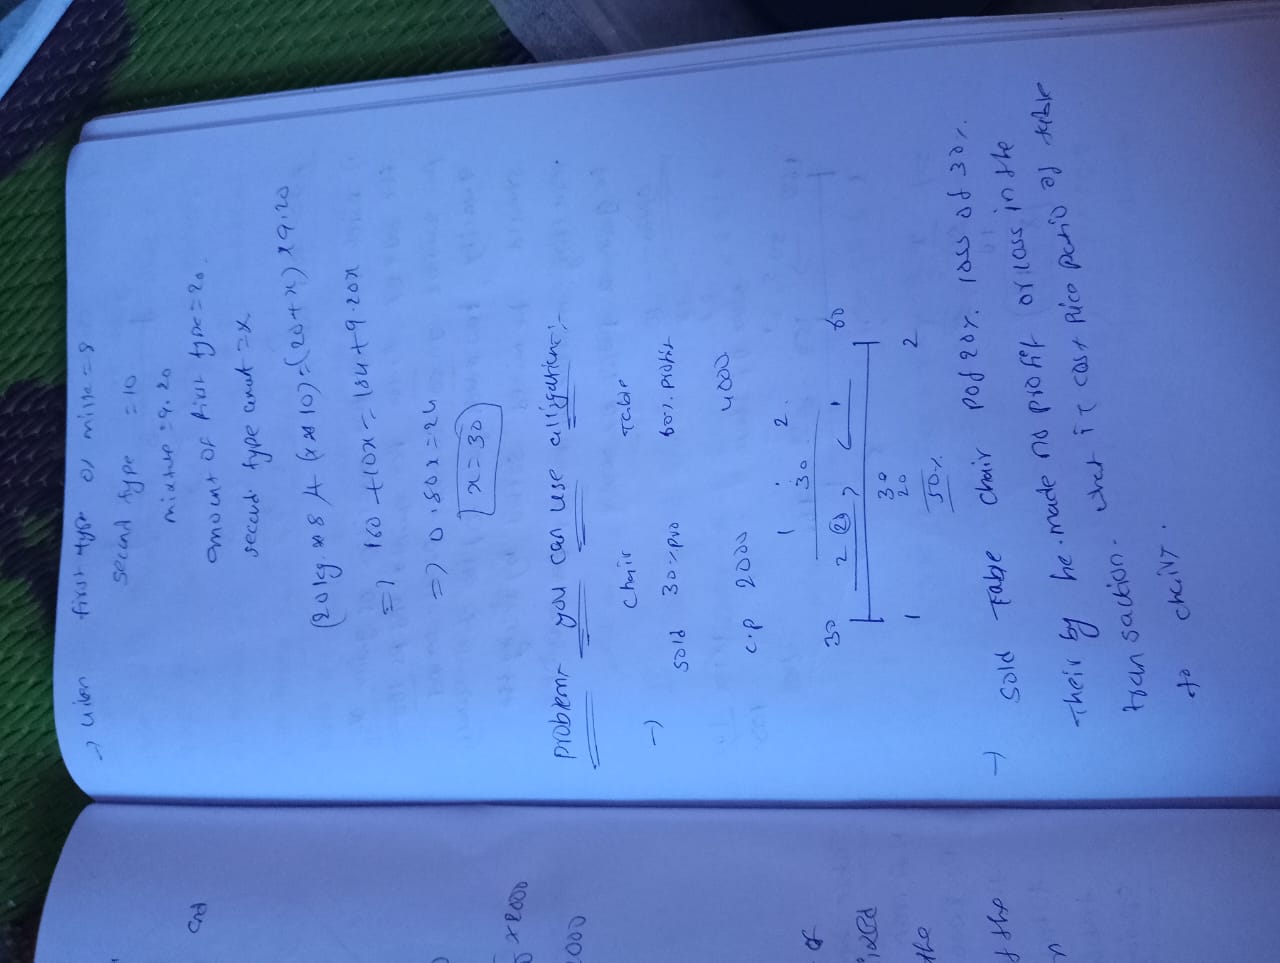 → first type of
second type = 10
mixture = 9.20
amount of first type = 20.
second type = x
(20kg x 8 + (x x 10) = (20 + x) x 9.20
=> 160 + 10x = 184 + 9.20x
=> 0.80x = 24
x = 30
problem:- you can use alligation:-
chair table
→ sold 30% pro 60% profit
C.P 2000 4000
1 : 2
30
30 2 20 1 60
1 2
30
20
50%
→ sold table chair 20% loss of 30%.
their by he made no profit or loss in the
transaction. what cost ratio of table
to chair.
and
x 2000
2000
of
the
n